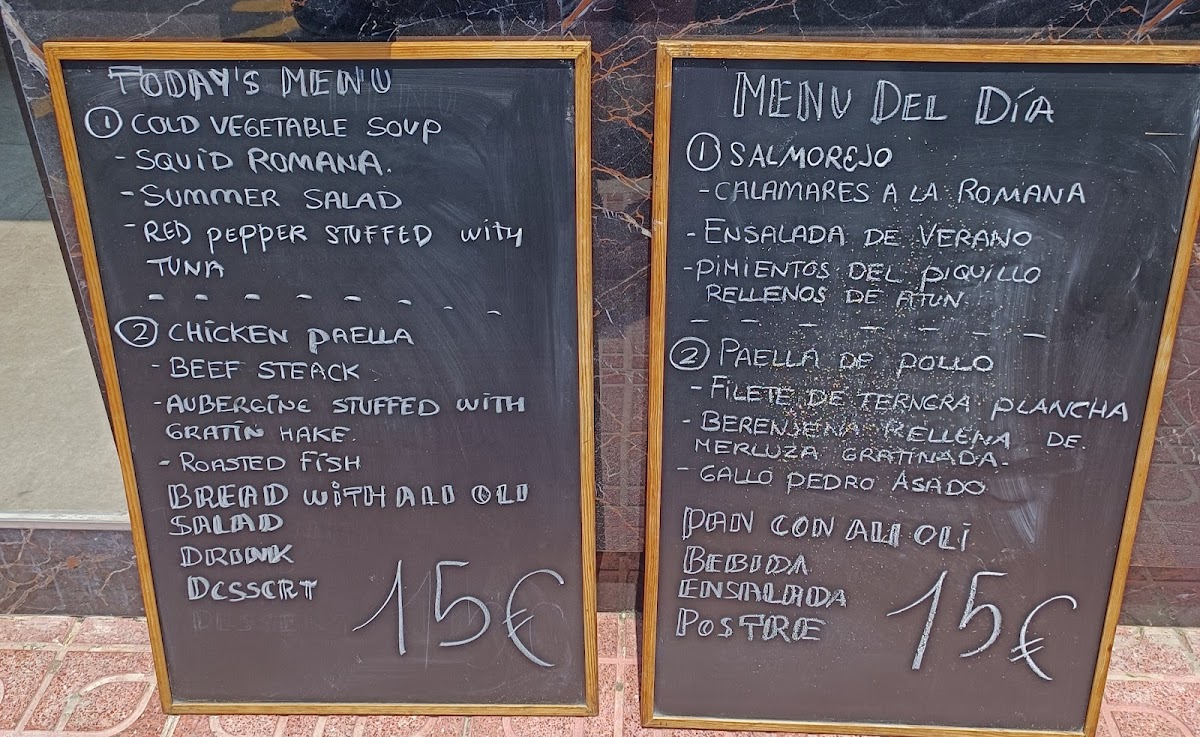 TODAY'S MENU
① COLD VEGETABLE SOUP
- SQUID ROMANA.
- SUMMER SALAD
- RED PEPPER STUFFED with
TUNA
② CHICKEN PAELLA
- BEEF STEACK
- AUBERGINE STUFFED WITH
GRATIN HAKE.
- ROASTED FISH
BREAD WITH ALI OLI
SALAD
DRINK
DESSERT
15€
MENU DEL DÍA
① SALMOREJO
- CALAMARES A LA ROMANA
- ENSALADA DE VERANO
- PIMIENTOS DEL PIQUILLO
RELLENOS DE ATUN
② PAELLA DE POLLO
- FILETE DE TERNERA PLANCHA
- BERENJENA RELLENA DE
MERLUZA GRATINADA.
- GALLO PEDRO ASADO
PAN CON ALI OLI
BEBIDA
ENSALADA
POSTRE
15€